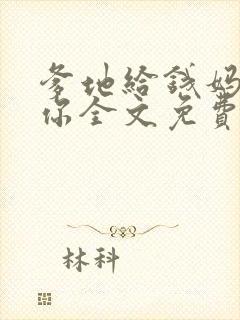 爹地給錢媽
你全文免費
林科